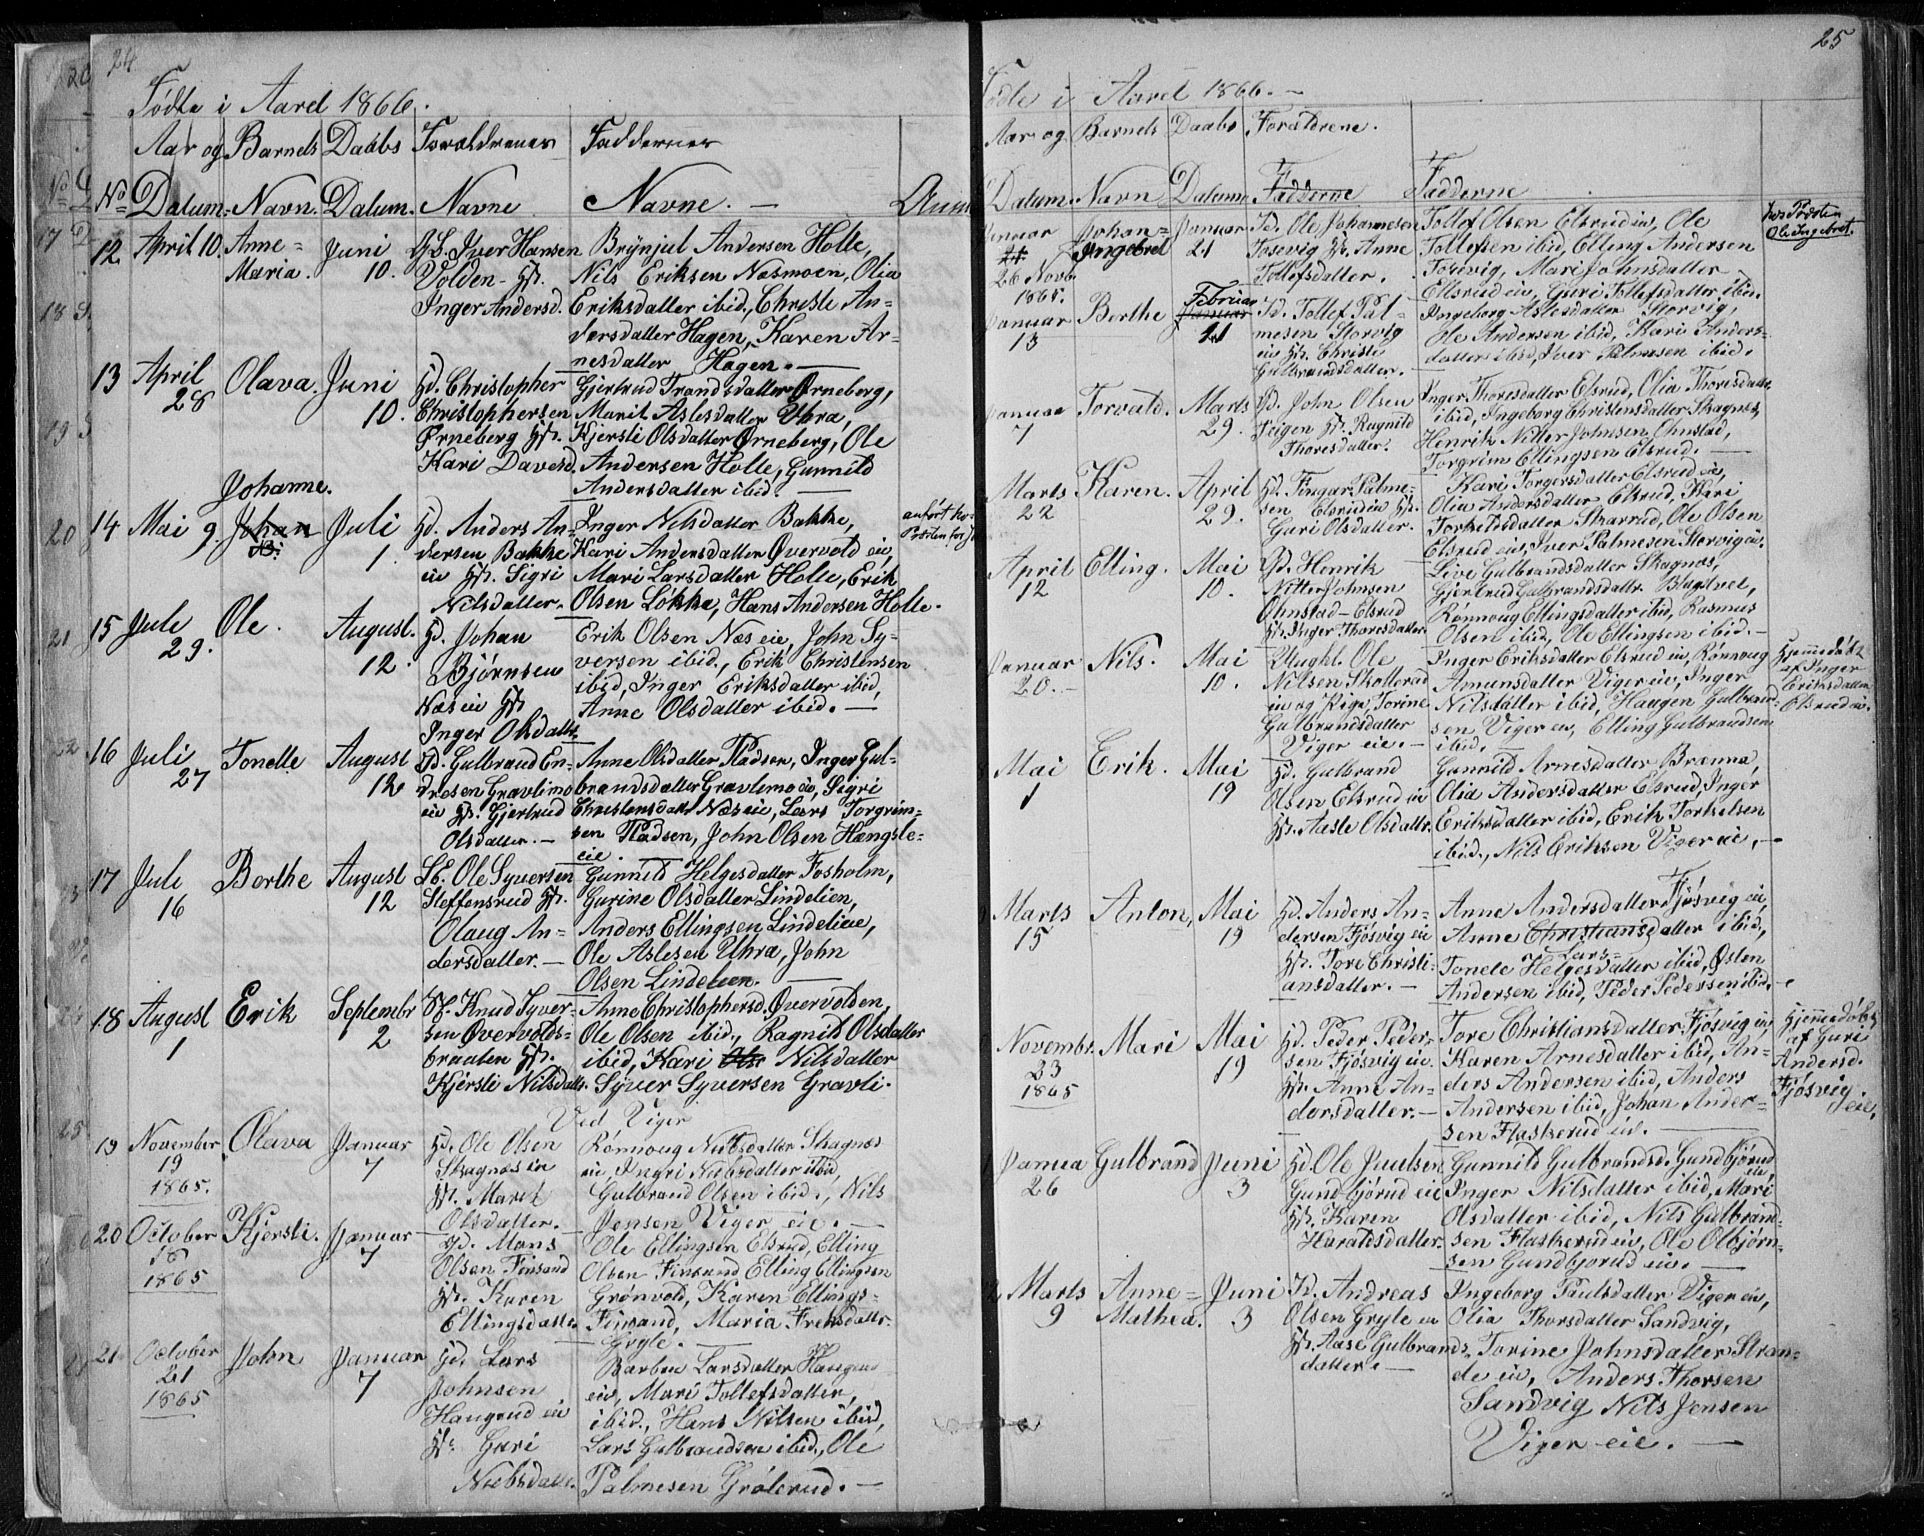 24
Fødte i Aaret 1866.
Aar og Barnets Daabs Forældrenes Faddernes
No Datum. Navn. Datum. Navne Navne. —
12 April 10. Anne=
Maria. Juni
10. GS. Iver Hansen
Volden - H.
Inger Andersd. Brynjul Andersen Holte,
Nils Eriksen Næsmoen, Olia
Eriksdatter ibid., Christe An-
dersdatter Hagen, Karen Ar-
nesdatter Hagen. —
13 April
28 Olava. Juni
10. Hd. Christopher
Christophersen
Ørneberg H.
Kari Davesd. Gjertrud Trondsdatter Ørneberg,
Marit Aslesdatter Uhra,
Kjersti Olsdatter Ørneberg, Ole
Andersen Holte, Gunnild
Andersdatter ibid. —
14 Mai 9. Johanne.
Johan Juli
1. Hd. Anders An-
dersen Bakke
eie H. Sigri
Nilsdatter. Inger Nilsdatter Bakke,
Kari Andersdatter Øvervold eie,
Mari Larsdatter Holte, Erik
Olsen Løkka, Hans Andersen Holte.
15 Juli
29. Ole. August.
12. Hd. Johan
Bjørnsen
Næs eie H.
Inger Olsdatter Erik Olsen Næs eie, John Sy-
versen ibid., Erik Christensen
ibid, Inger Eriksdatter ibid,
Anne Olsdatter ibid. —
16 Juli
27 Tonette August
12 Hd. Gulbrand En-
dresen Gravlimo
eie H. Gjertrud
Olsdatter. — Anne Olsdatter Pladsen, Inger Gul-
brandsdatter Gravlimo eie, Sigri
Christensdatt Næs eie, Lars Torgrim-
sen Pladsen, John Olsen Hængsle-
eie. —
17 Juli
16 Berthe August
12 SE. Ole Syversen
Steffensrud H.
Olaug An-
dersdatter. — Gunnild Helgesdatter Fosholm,
Gurine Olsdatter Lindelien,
Anders Ellingsen Lindelieie,
Ole Aslesen Uhra, John
Olsen Lindelien.
18 August
1 Erik Septembr
2 H. Knud Syver-
sen Øvervolds-
braaten H.
Kjersti Nilsdatt. Anne Christophersd. Øvervolden,
Ole Olsen ibid., Ragnild Olsdatter
ibid, Kari Nilsdatter
Syver Syversen Gravli.
Ved Viger
19 November
19
1865. Olava Januar
7 Hd. Ole Olsen
Skagnæs eie
H. Maret
Olsdatter. Rønnoug Nubsdatter Skagnæs
eie Ingri Nubsdatter ibid,
Gulbrand Olsen ibid., Nils
Jensen Viger eie. —
20 October
16
1865 Kjersti. Januar
7 Hd. Mons
Olsen Finsand
H. Karen
Ellingsdatter Ole Ellingsen Elsrud, Elling
Olsen Finsand Elling Ellingsen
Grønvold, Karen Ellings-
Finsand, Maria
Gryte. —
21 October
21
1865 John Januar
7 Hd. Lars
Johnsen
Haugerud eie
H. Guri
Nubsdatter. Barbra Larsdatter Haugerud
eie, Mari Tollefsdatter,
ibid., Hans Nilsen ibid,
Lars Gulbrandsen ibid., Ole
Palmesen Grøterud. —
25
Fødte i Aaret 1866. —
Aar og Barnets Daabs Forældrene.
Datum. Navn Datum Fadderne Fadderne
Januar
21
26 Novb
1865. Johan=
Ingebret Januar
21 Id. Ole Johannesen
Fosevig H. Anne
Tollefsdatter. Tollef Olsen Elsrud eie, Ole
Tollefsen ibid, Elling Andersen
Fosevig, Mari Johnsdatter
Ellsrud eie, Guri Tollefsdatter ibid. hos Præsten
Ole Ingebret.
Januar
13 Berthe Februar
Januar
21 Id. Tollef Pal-
mesen Storvig
eie H. Christi
Gulbrandsdatter. Ingeborg Aslesdatter Storvig,
Ole Andersen ibid, Kari Anders-
datter ibid, Iver Palmesen ibid.
Januar
7 Torvald. Marts
29. Hd. John Olsen
Teigen H. Ragnild
Thoresdatter. Inger Thoresdatter Elsrud, Olia Thoresdatter
ibid, Ingeborg Christensdatter Skagnæs,
Henrik Nitter Johnsen Ohnstad,
Torgrim Ellingsen Elsrud. —
Marts
22 Karen. April
29. Hd. Fingar Palme-
sen Elsrud eie H.
Guri Olsdatter. Kari Torgersdatter Elsrud eie,
Olia Andersdatter Elsrud, Kari
Torkelsdatter Skarrud, Ole Olsen
Elsrud eie, Iver Palmesen Storvig eie.
April
12 Elling. Mai
10. Hd. Henrik
Nitter Johnsen
Ohnstad - Elsrud
H. Inger Thoresdatter Live Gulbrandsdatter Skagnæs,
Gjertrud Gulbrandsdatt. Bugstvet,
Rønnoug Ellingsdatter ibid, Rasmus
Olsen ibid, Ole Ellingsen ibid. —
Januar
20. — Nils. Mai
10. Ungkl. Ole
Nilsen Skollerud
eie og Pige, Torine
Gulbrandsdatter
Viger eie. — Inger Eriksdatter Elsrud eie, Rønnoug
Amundsdatter Viger eie, Inger
Nilsdatter ibid, Haagen Gulbrand-
sen Viger eie, Elling Gulbrandsen
ibid. — Hjemmedøbt
af Inger
Eriksdatter
Elsrud eie.
Mai
1 Erik. Mai
19 Hd. Gulbrand
Olsen Elsrud eie
H. Aasle Olsdatter. Gunnild Arnesdatter Brenna,
Olia Andersdatter Elsrud, Inger
Eriksdatter ibid, Erik Torkelsen
ibid., Nils Eriksen Viger eie, —
Marts
15 Anton, Mai
19 Hd. Anders An-
dersen Fjøsvig eie
H. Tore Christi-
ansdatter. — Anne Andersdatter Fjøsvig eie,
Anne Christiansdatter ibid,
Lars-
Tonete Helgesdatter ibid, Østen
Andersen ibid, Peder Pedersen ibid. —
Novembr.
23
1865 Mari Mai
19 Hd. Peder Peder-
sen Fjøsvig eie.
H. Anne An-
dersdatter. — Tore Christiansdatter, Fjøsvig eie,
Karen Arnesdatter ibid, An-
ders Andersen ibid, Anders
Andersen ibid, Johan Ander-
sen Flaskerud eie. Hjemmedøbt
af Guri
Andersd.
Fjøsvig
eie.
Janua
26 Gulbrand Juni
3 Hd. Ole Juulsen
Gundbjørud eie
H. Karen
Haraldsdatter. Gunnild Gulbrandsd. Gundbjørud
eie
Inger Nilsdatter ibid, Mari
Olsdatter ibid, Nils Gulbrand-
sen Flaskerud eie, Ole Olbjørn-
sen Gundbjørud eie. —
Marts
9 Anne=
Mathea. Juni
3 Id. Andreas
Olsen Gryte eie
H. Aase Gulbrands-
datter. — Ingeborg Paulsdatter Viger eie,
Olia Thorsdatter Sandvig,
Torine Johnsdatter Stran-
de eie, Anders Thorsen
Sandvig Nils Jensen
Viger eie. —